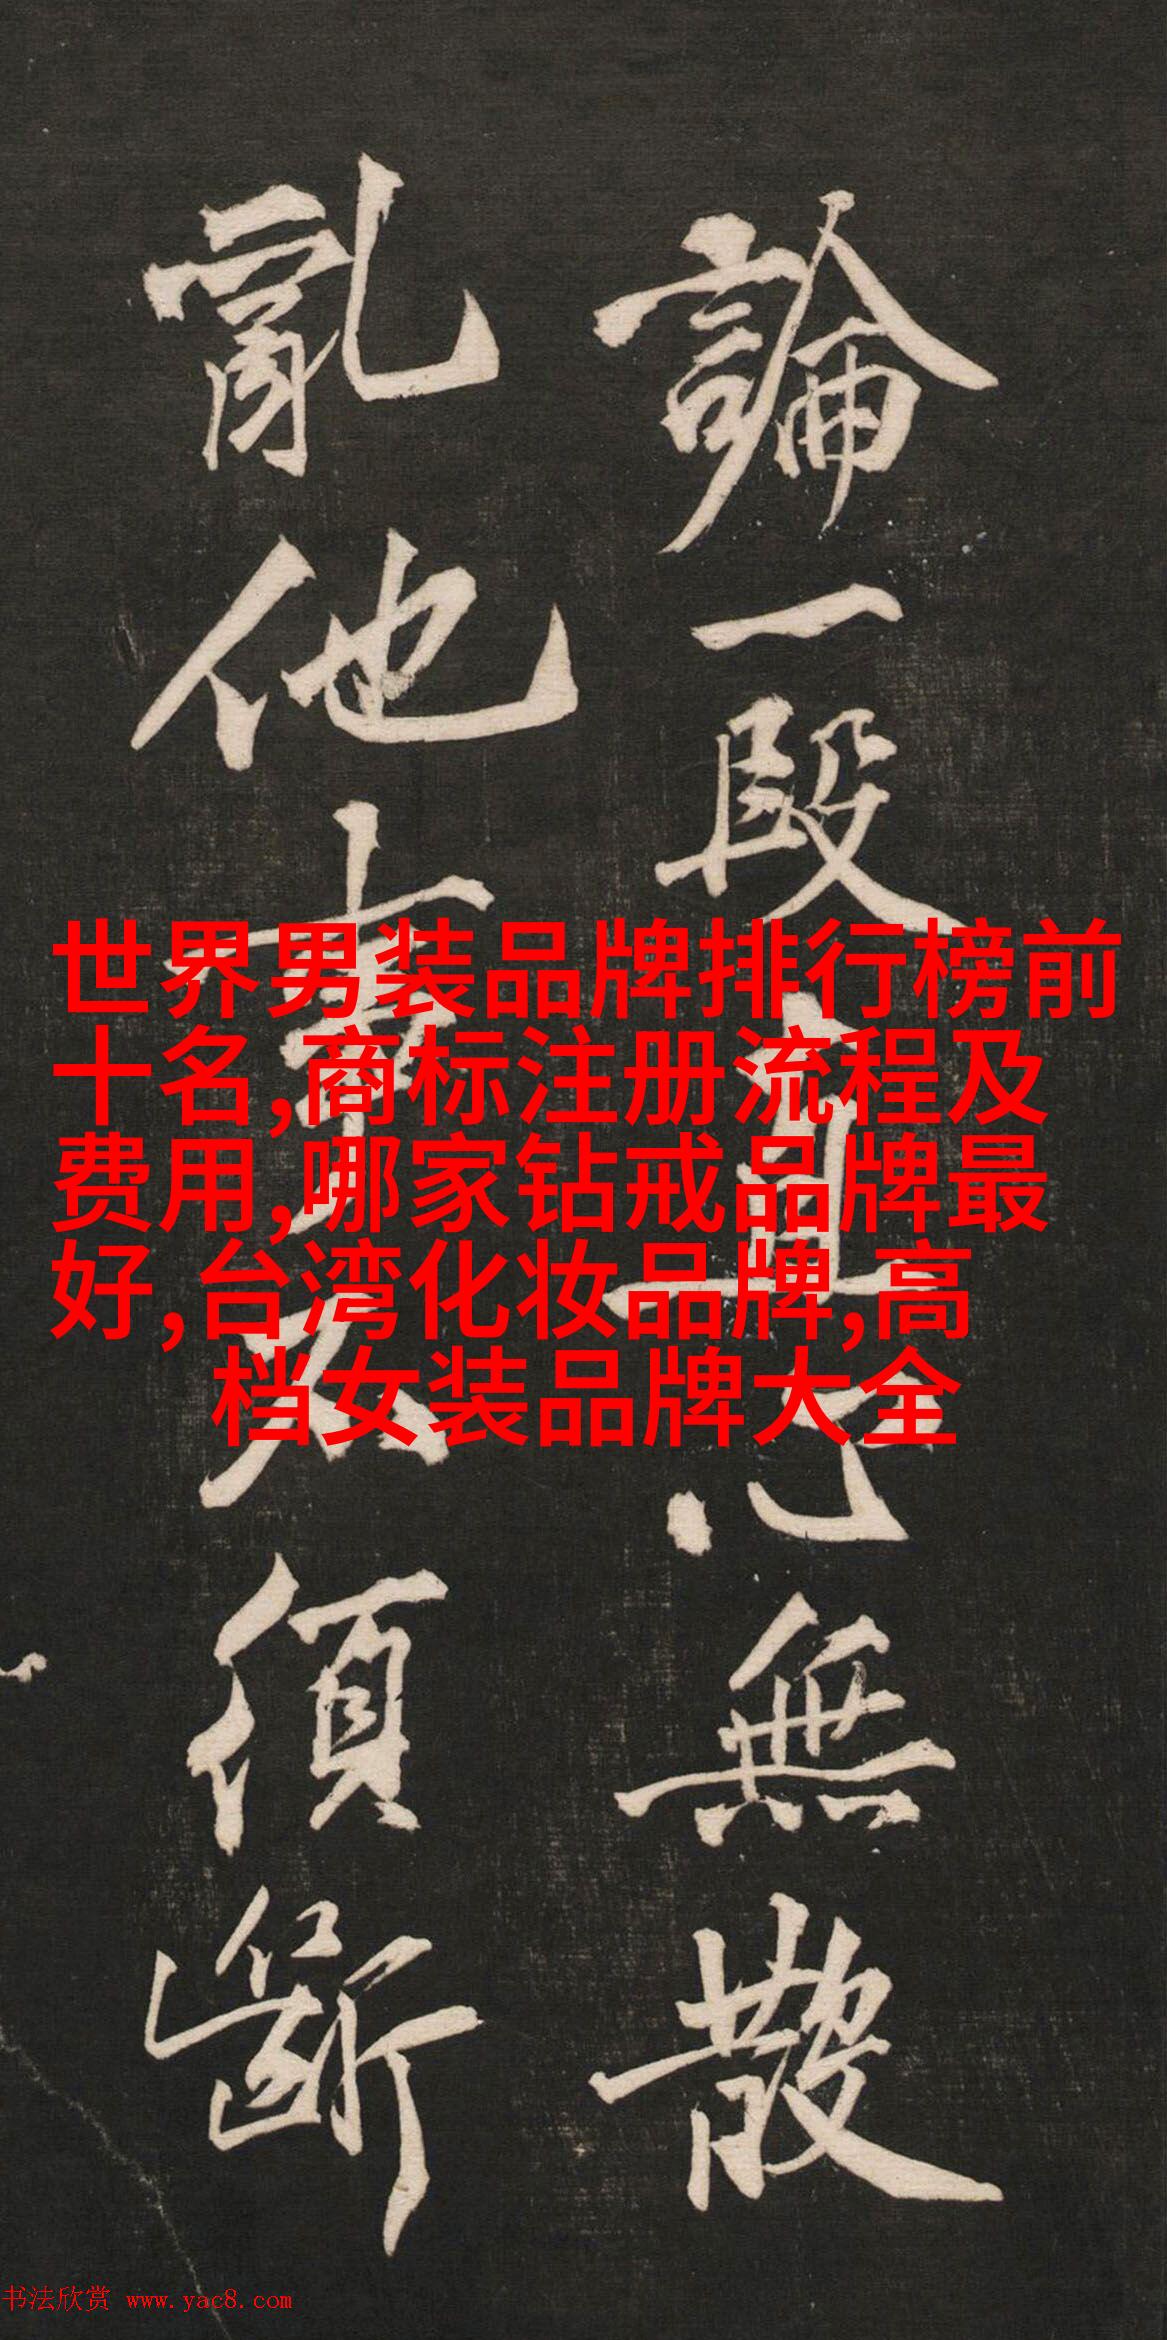 論一段真心無散
亂他事不須斷
世界男装品牌排行榜前
十名,商标注册流程及
费用,哪家钻戒品牌最
好,台湾化妆品牌,高
档女装品牌大全
书法欣赏 www.yac8.com